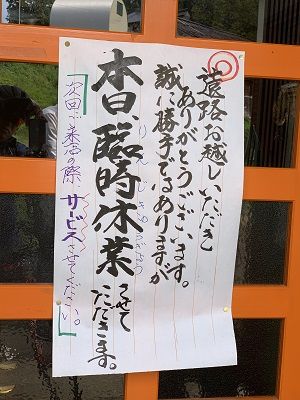 遠路お越しいただき
ありがとうございます。
誠に勝手でありますが
本日、臨時休業
りんじきゅうぎょう
させて
いただきます。
次回ご来店の際、
サービスさせて下さい。